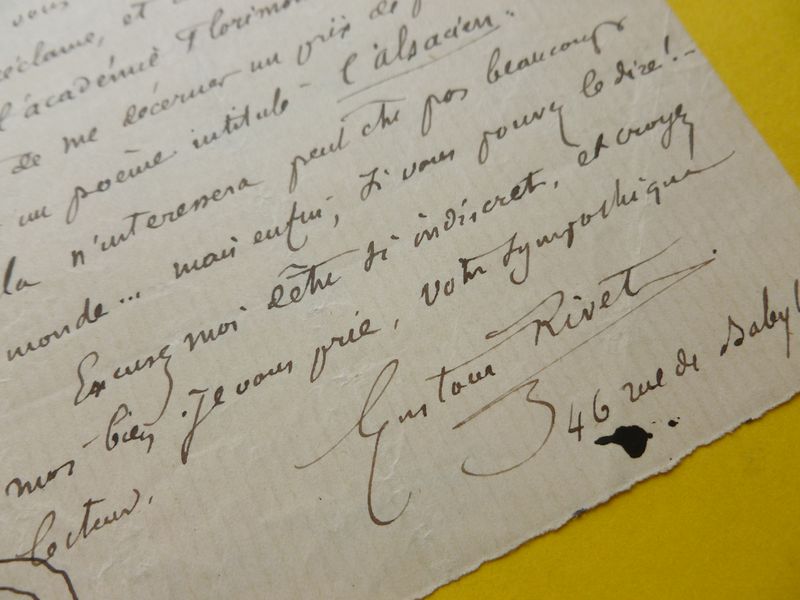 vous
réclame, et
l'académie Florimon
de me décerner un prix de p
un poème intitulé - l'alsacien.
la n'interessera peut être pas beaucoup
monde... mais enfin, si vous pouvez le dire! -
Excusez moi d'être si indiscret, et croyez
moi-bien, je vous prie, votre sympathique
lecteur.
Gustave Rivet
46 rue de Babyl